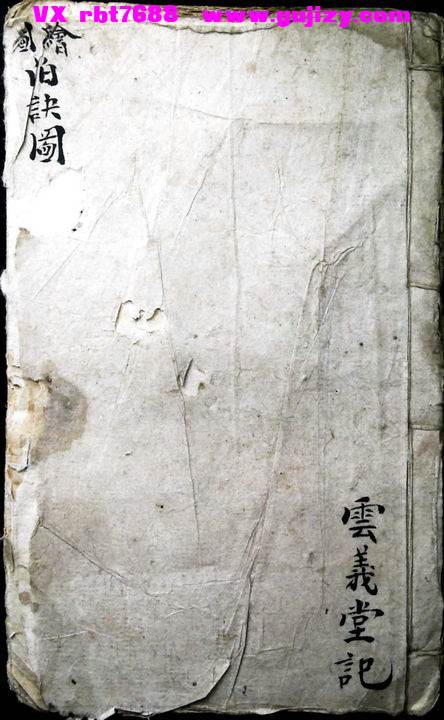 VX rbt7688 www.gujizy.com
繪
訣圖
雲義堂記